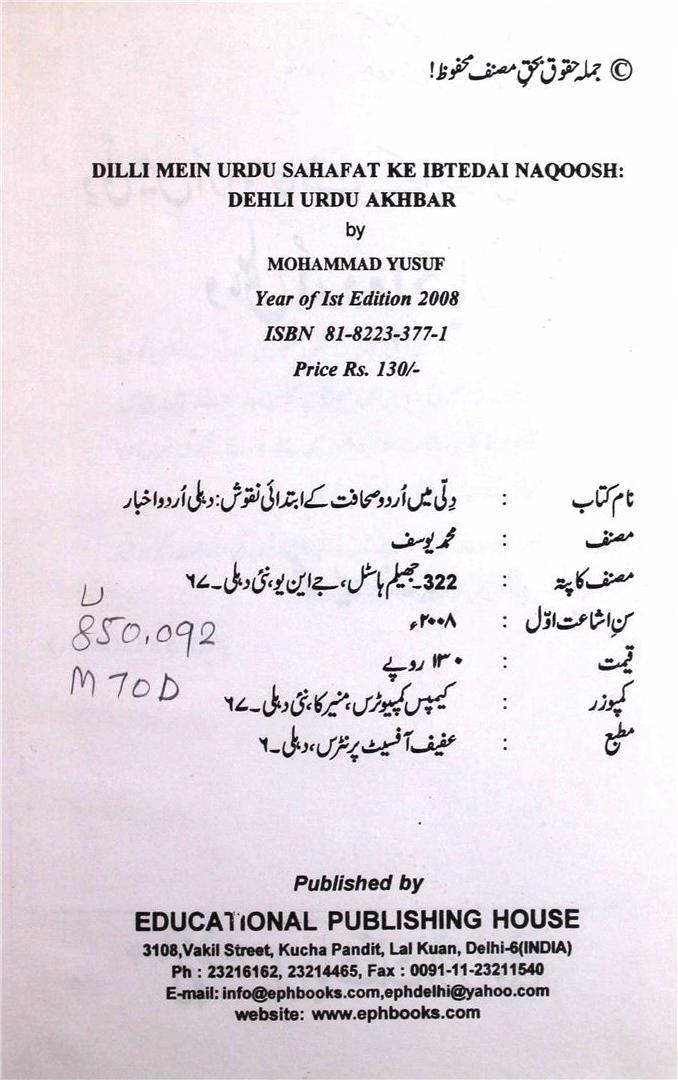 © جملہ حقوق بحقِ مصنف محفوظ!
DILLI MEIN URDU SAHAFAT KE IBTEDAI NAQOOSH:
DEHLI URDU AKHBAR
by
MOHAMMAD YUSUF
Year of Ist Edition 2008
ISBN 81-8223-377-1
Price Rs. 130/-
نام کتاب : دِلّی میں اُردو صحافت کے ابتدائی نقوش: دہلی اُردو اخبار
مصنف : محمد یوسف
مصنف کا پتہ : 322۔جھیلم ہاسٹل، جے این یو، نئی دہلی۔۶۷
سنِ اشاعت اوّل : ۲۰۰۸ء
قیمت : ۱۳۰ روپے
کمپوزر : کیمپس کمپیوٹرس، منیرکا، نئی دہلی۔۶۷
مطبع : عفیف آفسیٹ پرنٹرس، دہلی۔۶
U
850.092
M70D
Published by
EDUCATIONAL PUBLISHING HOUSE
3108,Vakil Street, Kucha Pandit, Lal Kuan, Delhi-6(INDIA)
Ph : 23216162, 23214465, Fax : 0091-11-23211540
E-mail: info@ephbooks.com,ephdelhi@yahoo.com
website: www.ephbooks.com